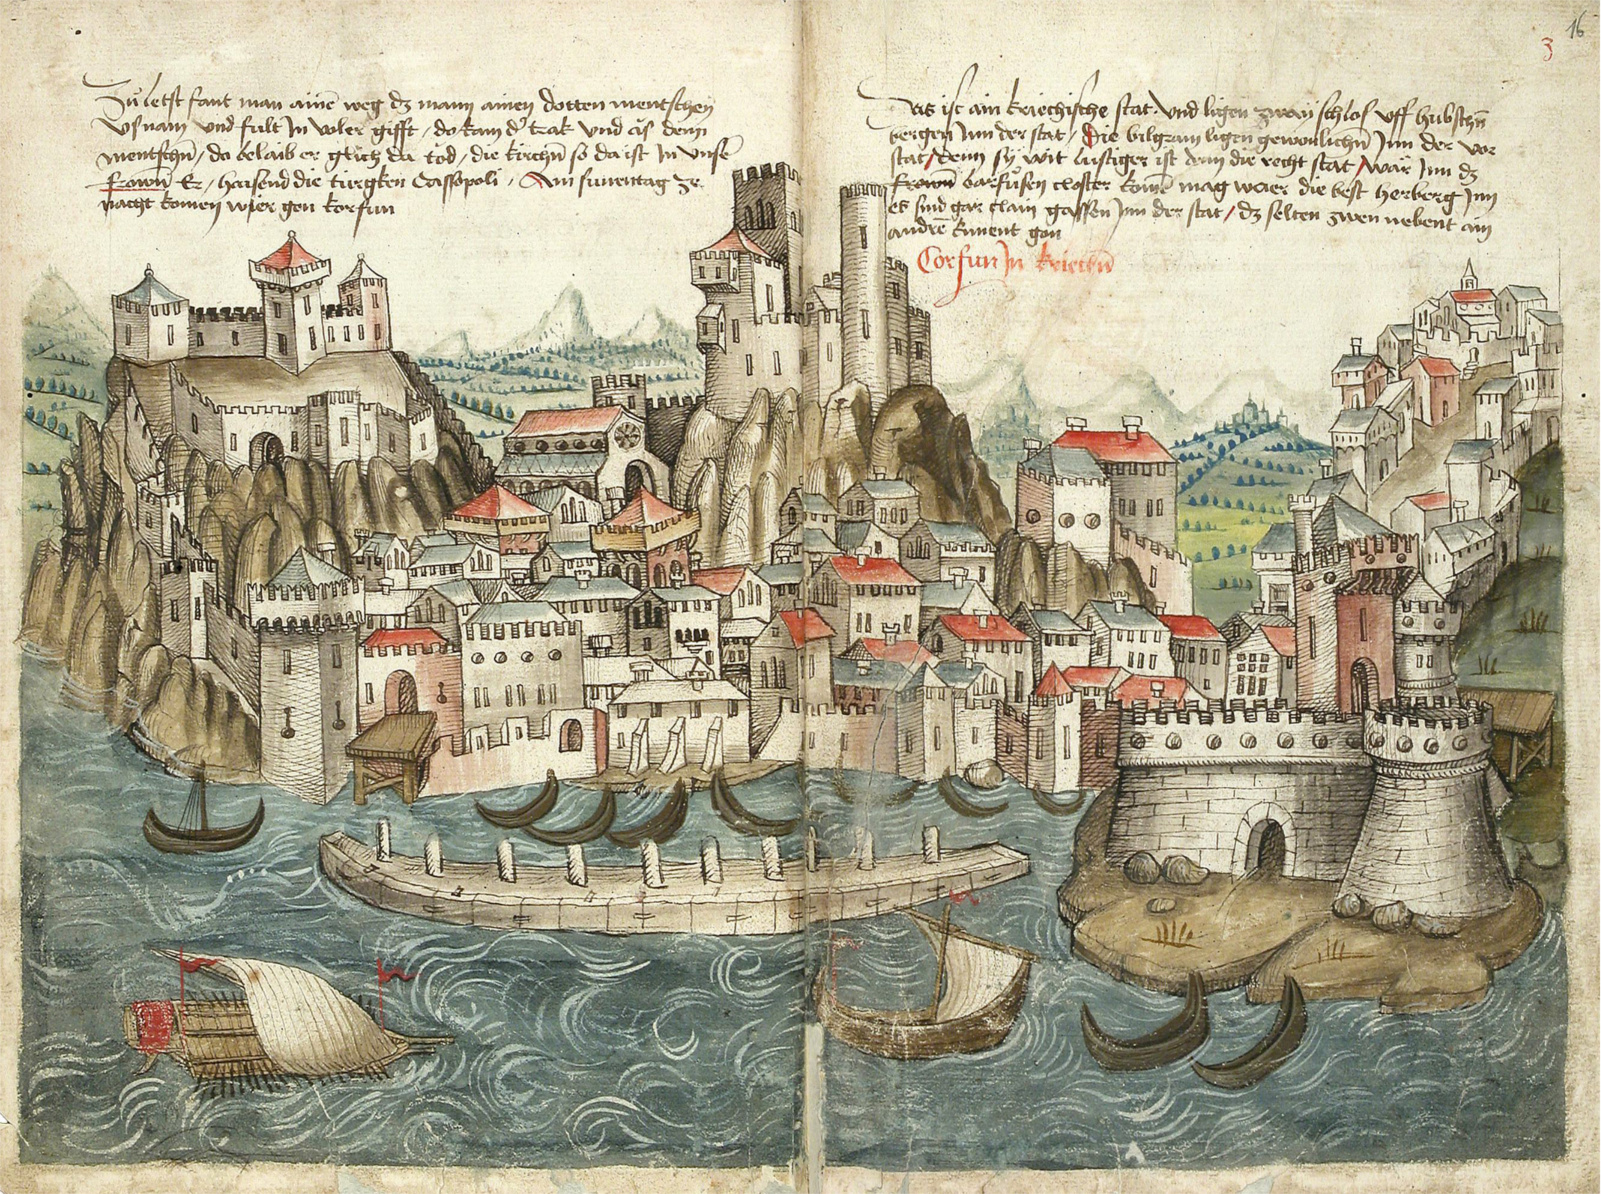 Zů letst fant man ainē weg dz mann ainen dotten mentschen
usnam und fult In voler gifft / do kam d' trak und as denn
mentschn / do belaib er glich da tod / die kirchn so da ist In unse'
frowen Er / haisend die turgken Cassopoli / Am sunentag ze
nacht komen wier gen korfun
Das ist ain kriechische stat und ligen zwai schlos uff hubschn
bergen Inn der stat / Die bilgram ligen gewonlichn Inn der vor
stat / denn sy wit lustiger ist denn die recht stat / war Inn dz
frowen barfůsen closter komē mag wær die best herberg Inn
es sind gar clain gassen Inn der stat / dz selten zwen nebent ain
andrē kument gon
Corfun In kriechn
3
16